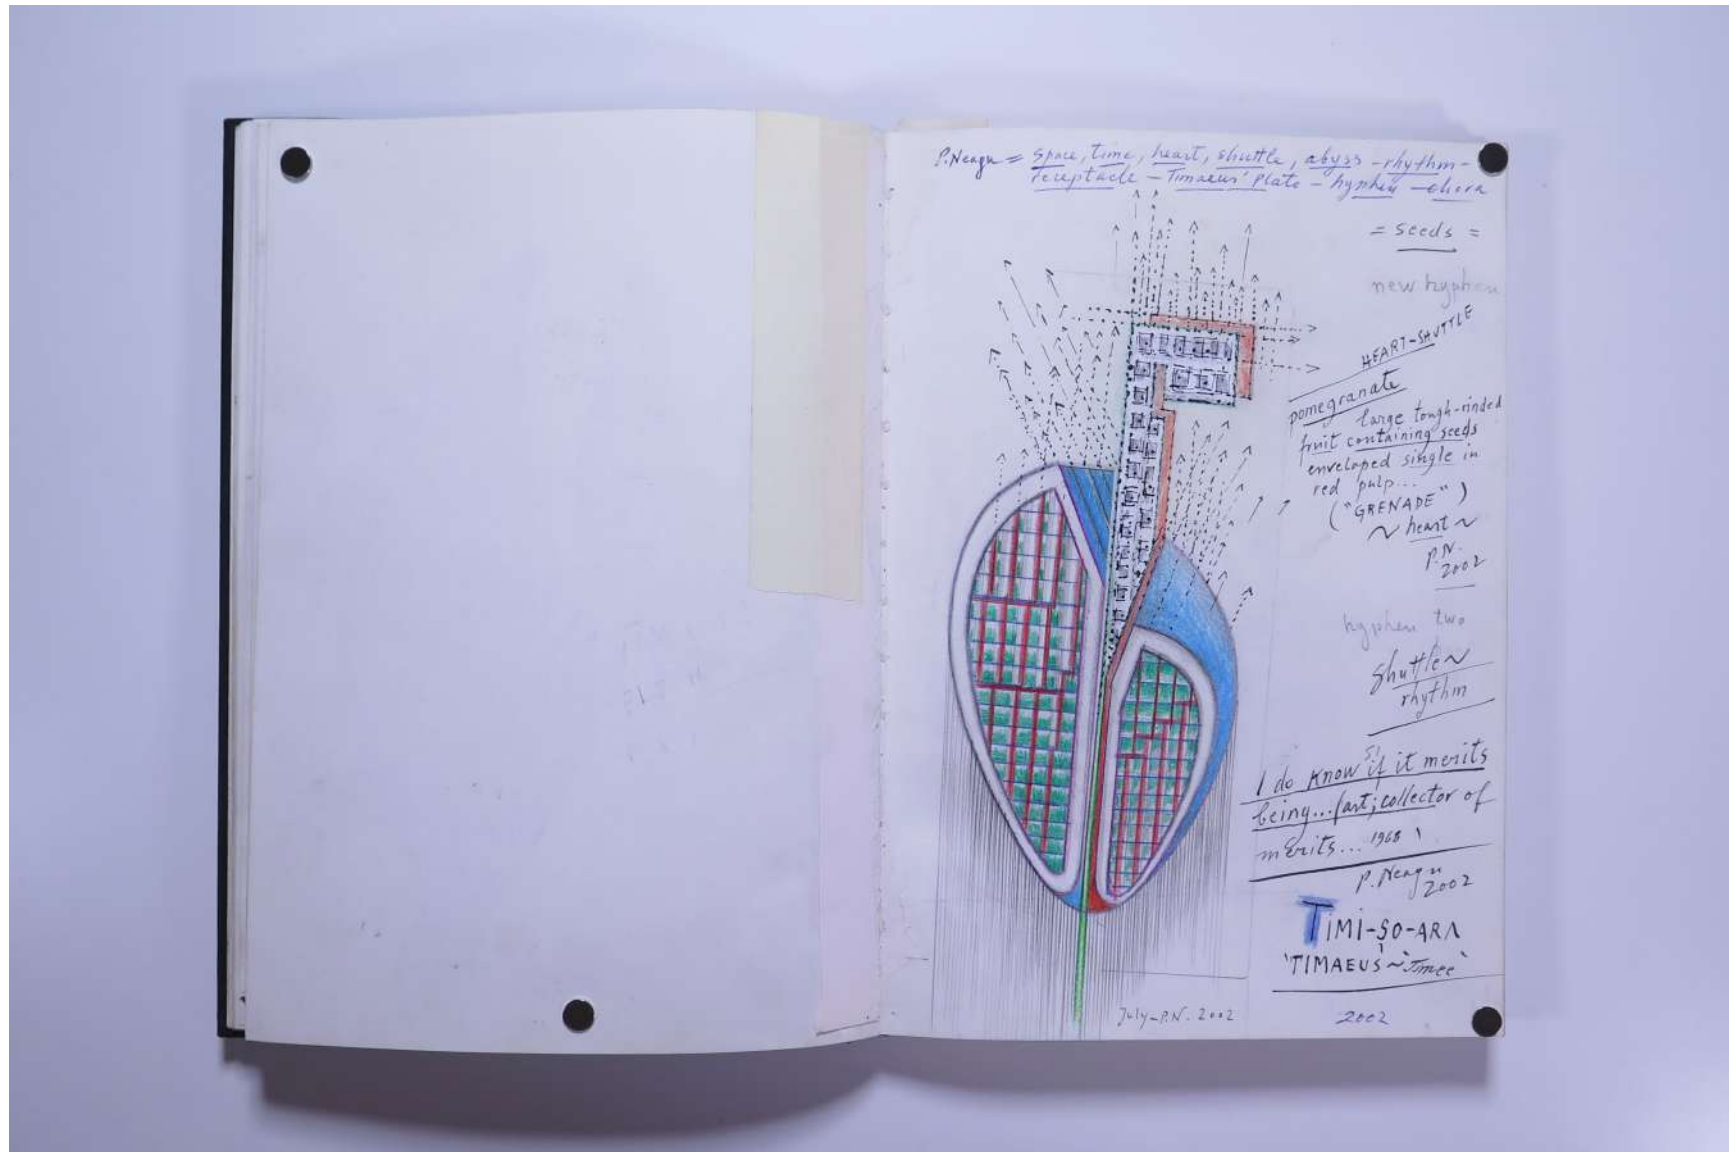 P.Neagu = Space, time, heart, shuttle, abyss - rhythm -
receptacle - Timaeus' Plato - hyphen - chora
= seeds =
new hyphen
HEART-SHUTTLE
pomegranate
large tough-rinded
fruit containing seeds
enveloped single in
red pulp...
("GRENADE")
~ heart ~
P.N.
2002
hyphen two
Shuttle~
rhythm
I do know if it merits
being... (art; collector of
merits... 1968
P. Neagu
2002
TIMI-ŞO-ARA
'TIMAEUS' ~ 'Timee'
July-P.N. 2002
2002